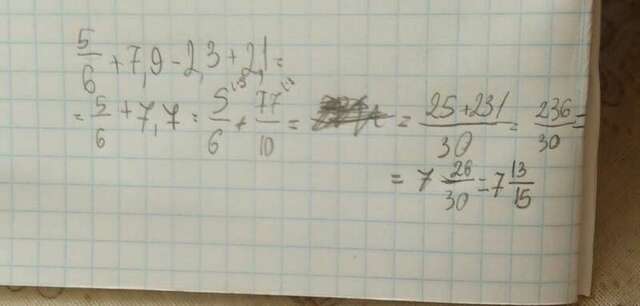 5/6 + 7,9 - 2,3 + 2,1 =
= 5/6 + 7,7 = 5/6 + 77/10 = = 25+231/30 = 236/30 =
= 7 26/30 = 7 13/15